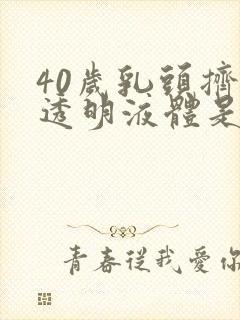 40歲乳頭擠
透明液體是
青春從我愛你